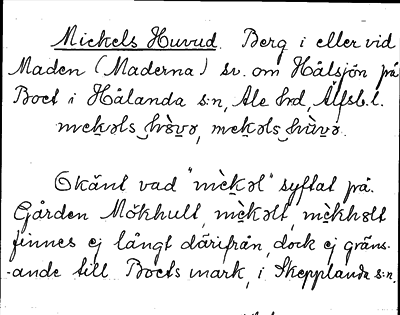 Mickels Huvud. Berg i eller vid
Maden (Maderna) sv. om Hålsjön på
Boet i Hålanda s:n, Ale hrd, Älfsb. l.
mek̠əls‿hòvə, mek̠əls‿hùvə.
Okänt vad "mèk̠əl" syftat på.
Gården Mökhult, mèk̠əlt, mèkhəlt
finnes ej långt därifrån, dock ej gräns-
-ande till Boets mark, i Skepplanda s:n.